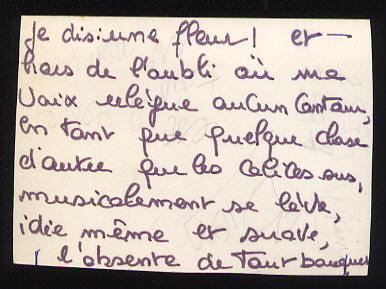 Je dis: une fleur! et —
hors de l'oubli où ma
voix relègue aucun contour,
en tant que quelque chose
d'autre que les calices sus,
musicalement se lève,
idée même et suave,
l'absente de tout bouquet